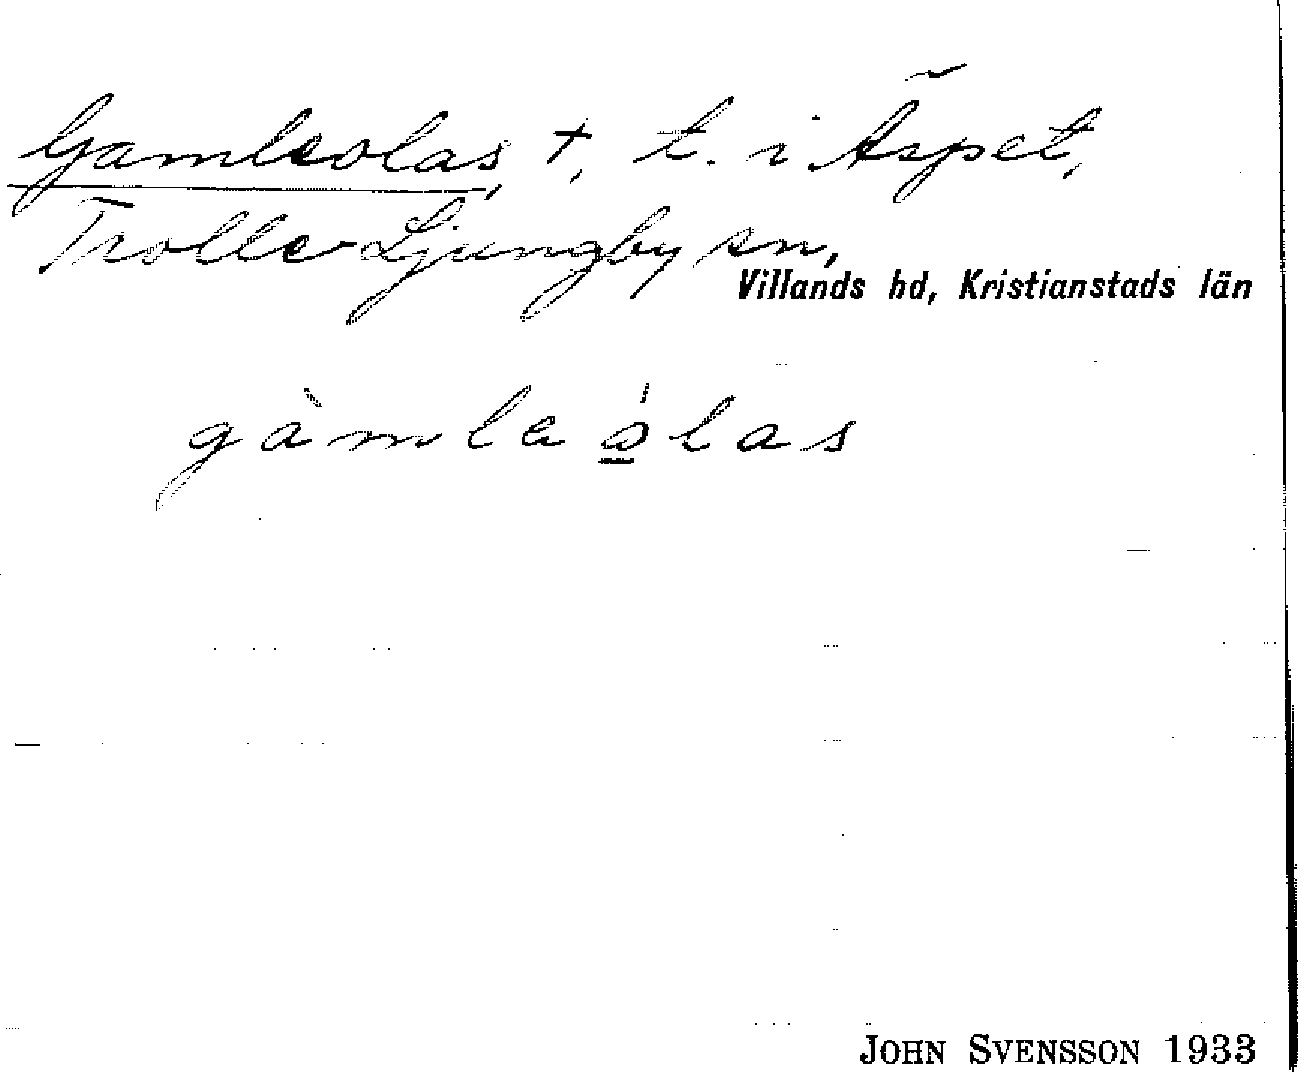 Gamleolas, +, t. i Äspet,
Trolle-Ljungby sn,
Villands hd, Kristianstads län
gàmle ólas
JOHN SVENSSON 1933